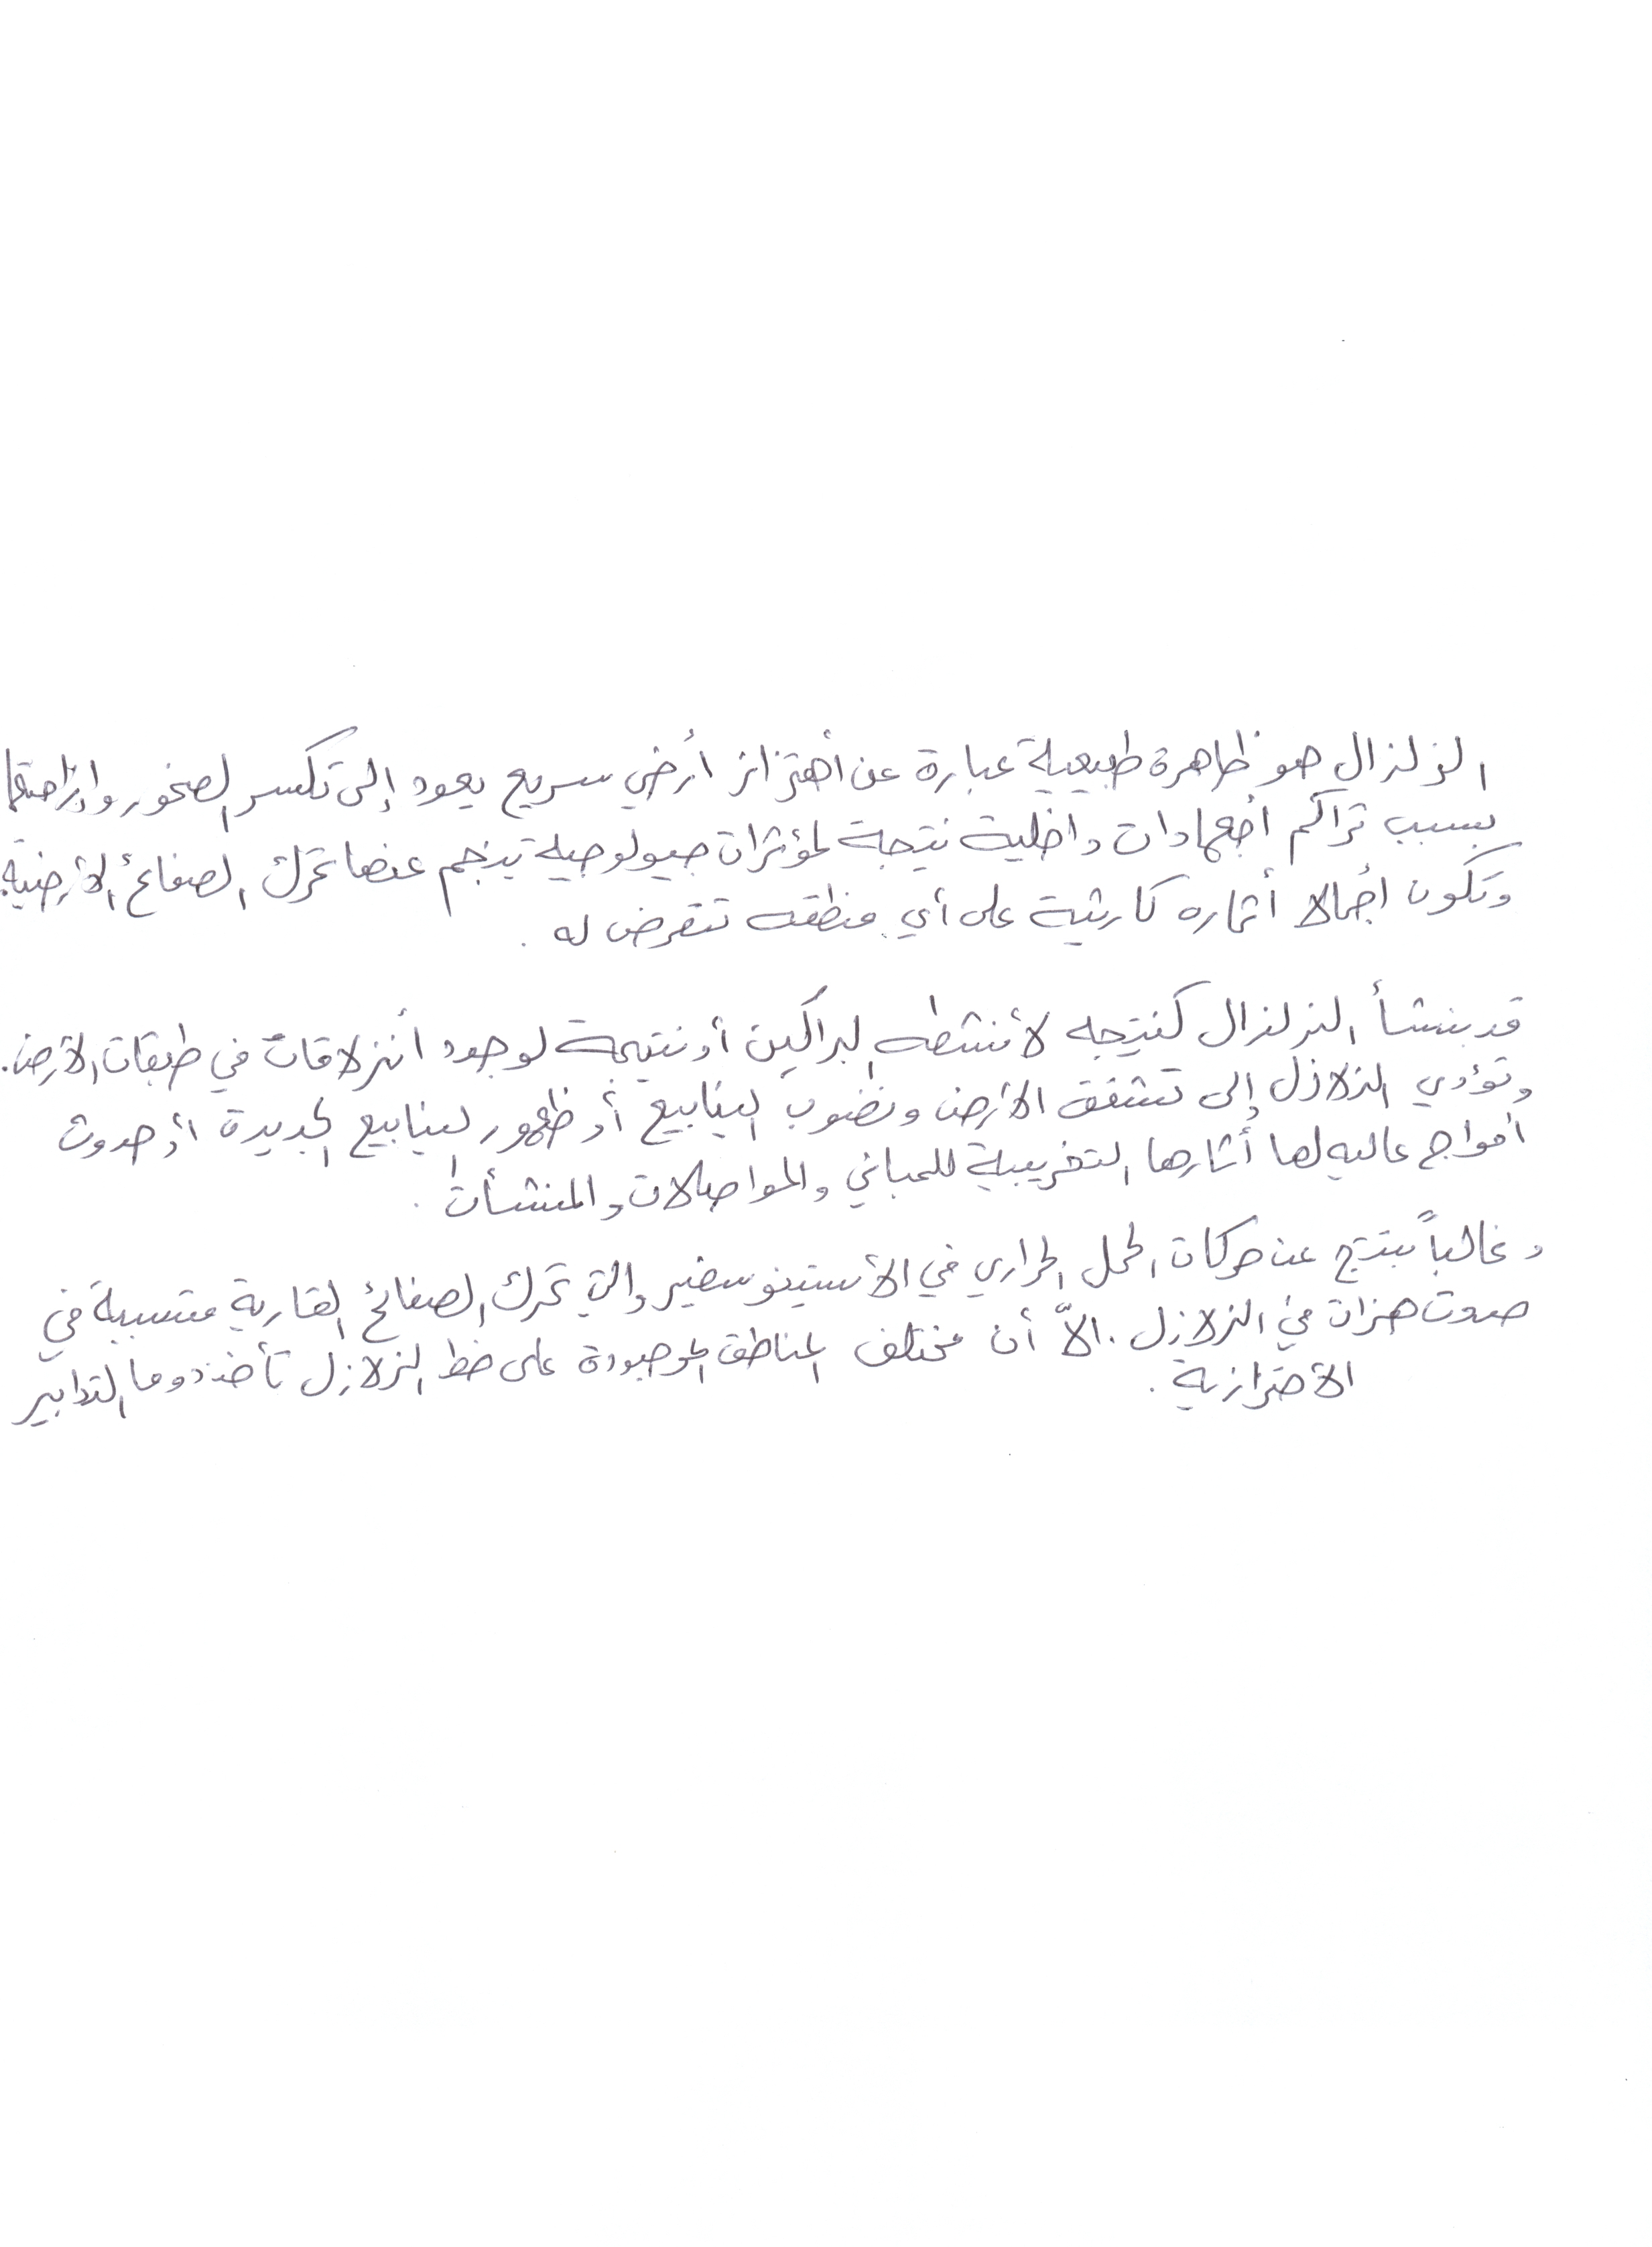 الزلزال هو ظاهرة طبيعية عبارة عن أهتزاز أرضي سريع يعود إلى تكسر الصخور وإزاحتها
بسبب تراكم أجهادات داخلية نتيجة لمؤثرات جيولوجية ينجم عنها تحرك الصفائح الأرضية.
وتكون أجمالا أثاره كارثية على أي منطقه تتعرض له .
قد ينشأ الزلزال كنتيجه لأنشطه البراكين أو نتيجة لوجود أنزلاقات في طبقات الأرض.
وتؤدي الزلازل إلى تشقق الأرض ونضوب الينابيع أو ظهور الينابيع الجديدة أو حدوث
أمواج عاليه لها أثارها التخريبية للمباني والمواصلات والمنشأت .
وغالباً ينتج عن حركات الحمل الحراري في الأستينوسفير والتي تحرك الصفائح القارية متسببة في
حدوث هزات في الزلازل . الاّ أن مختلف المناطق الموجودة على خط الزلازل تأخذ دوما التدابير
الأحترازية .